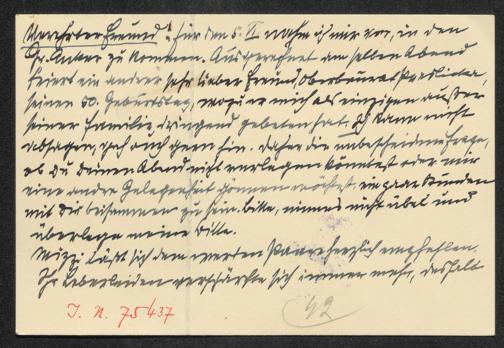 Verehrter Freund! Für den 5. II nahm ich mir vor, in den
Gr. Anker zu kommen. Ausgerechnet am selben Abend
feiert ein andrer sehr lieber Freund, Oberbaurat
seinen 50. Geburtstag, wozu er mich als einzigen außer
seiner Familie, dringend gebeten hat. Ich kann nicht
absagen, geh auch gern hin. Daher die unbescheidene Frage,
ob du deinen Abend nicht verlegen könntest oder mir
eine andre Gelegenheit gönnen möchtest, ein paar Stunden
mit dir beisammen zu sein. Bitte, nimms nicht übel und
überlege meine Bitte.
Mizzi läßt sich dem werten Paare herzlich empfehlen.
Ihr Leberleiden verschärfte sich immer mehr, deshalb
I. N. 75437
42